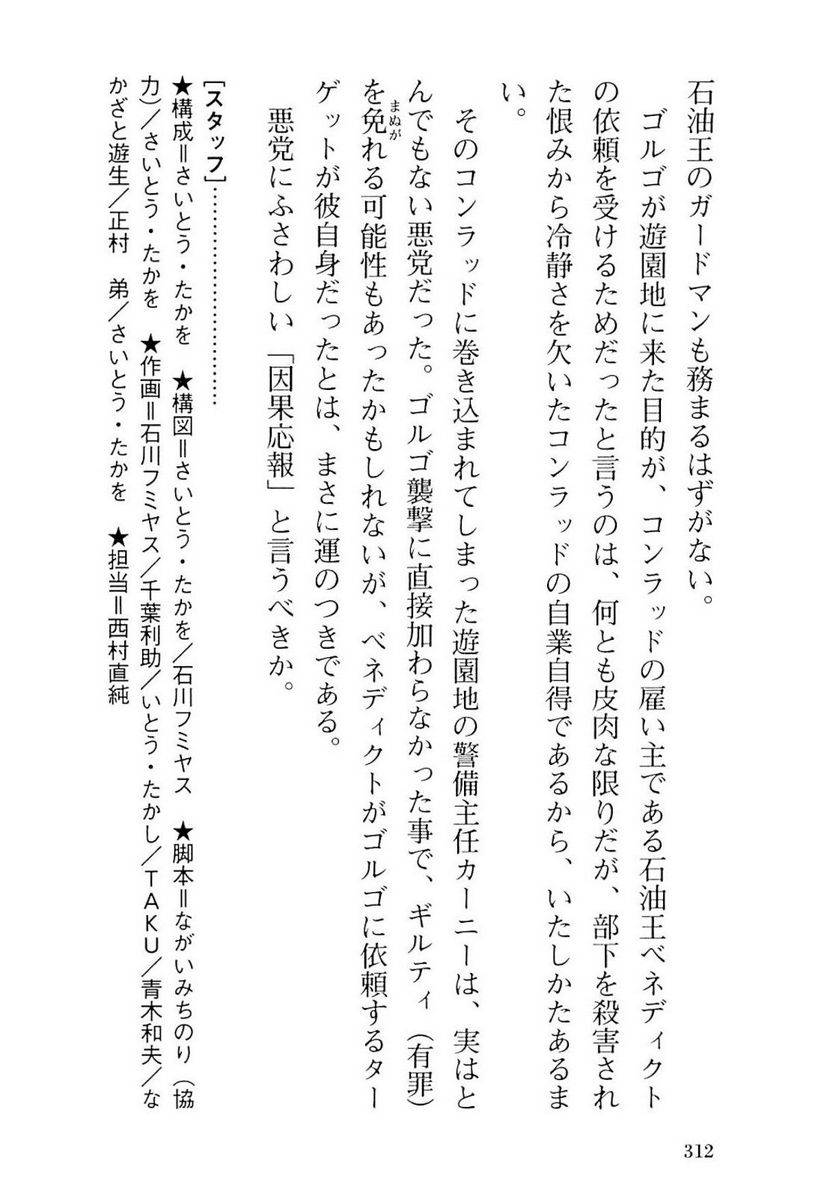 石油王のガードマンも務まるはずがない。
ゴルゴが遊園地に来た目的が、コンラッドの雇い主である石油王ベネディクト
の依頼を受けるためだったと言うのは、何とも皮肉な限りだが、部下を殺害され
た恨みから冷静さを欠いたコンラッドの自業自得であるから、いたしかたあるま
い。
そのコンラッドに巻き込まれてしまった遊園地の警備主任カーニーは、実はと
んでもない悪党だった。ゴルゴ襲撃に直接加わらなかった事で、ギルティ（有罪）
を免れる可能性もあったかもしれないが、ベネディクトがゴルゴに依頼するター
まぬが
ゲットが彼自身だったとは、まさに運のつきである。
悪党にふさわしい「因果応報」と言うべきか。
［スタッフ］……………………
★構成＝さいとう・たかを　★構図＝さいとう・たかを／石川フミヤス　★脚本＝ながいみちのり（協
力）／さいとう・たかを　★作画＝石川フミヤス／千葉利助／いとう・たかし／ＴＡＫＵ／青木和夫／な
かざと遊生／正村　弟／さいとう・たかを　★担当＝西村直純
312